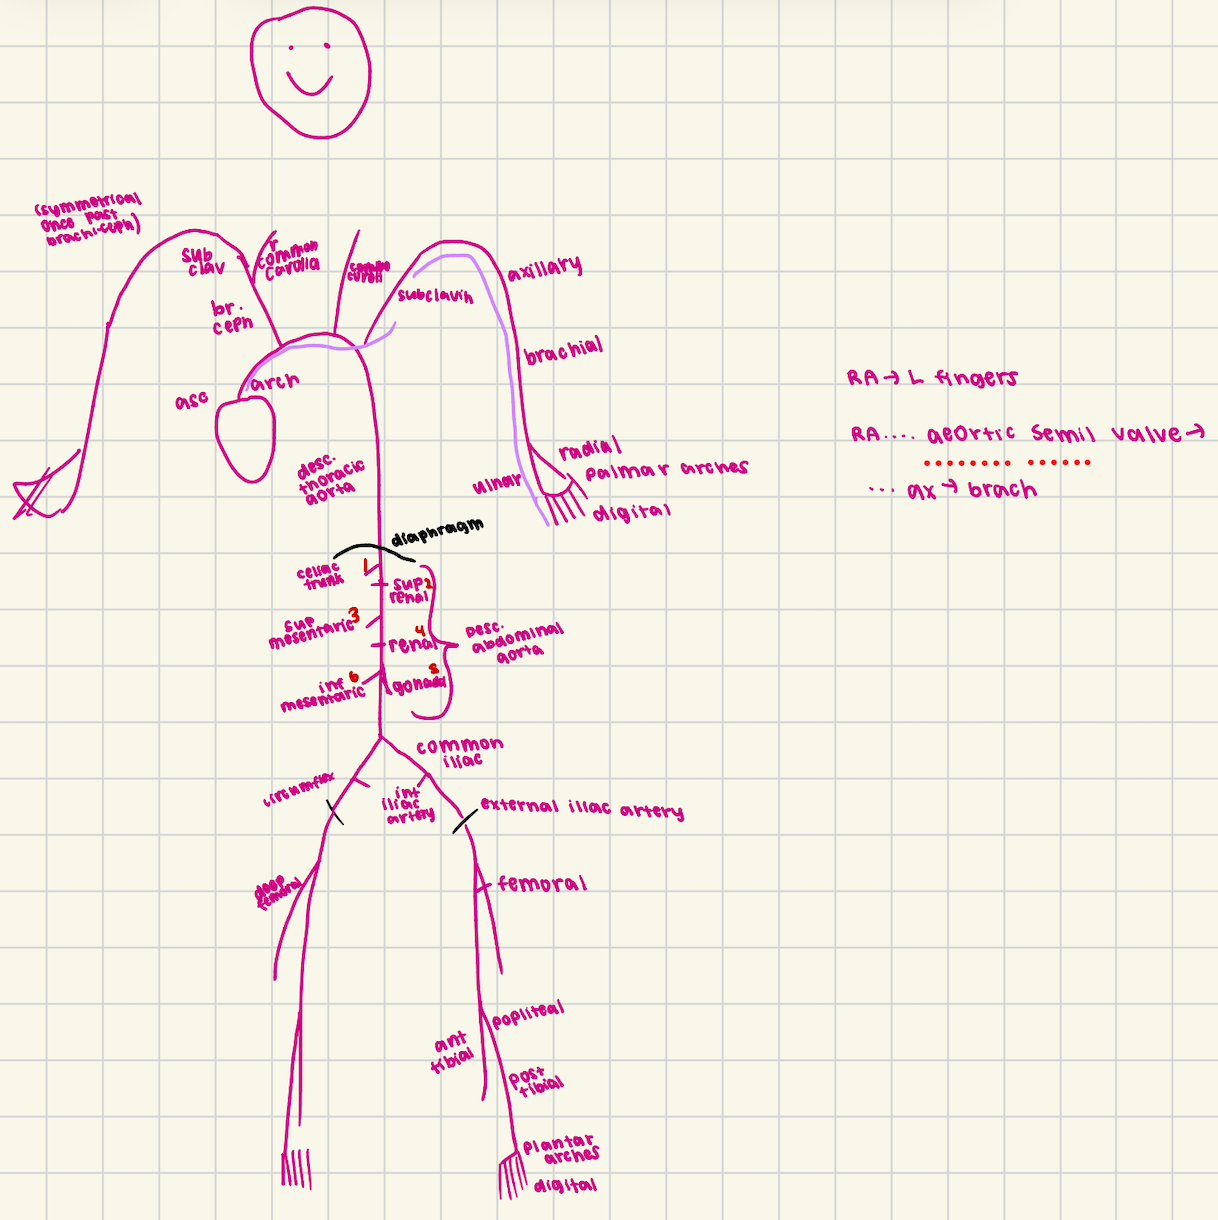 (symmetrical
once past
brachi-ceph)
sub
clav
r
common
carotid
subclavin
axillary
br.
ceph
brachial
asc
arch
RA → L fingers
RA.... aeortic semil valve →
... ax → brach
desc.
thoracic
aorta
radial
palmar arches
ulnar
digital
diaphragm
celiac
trunk
1
sup 2
renal
sup
mesentaric 3
4
renal
Desc.
abdominal
aorta
inf
mesentaric 6
gonadal
common
iliac
circumflex
int
iliac
artery
external iliac artery
deep
femoral
femoral
popliteal
ant
tibial
post
tibial
plantar
arches
digital